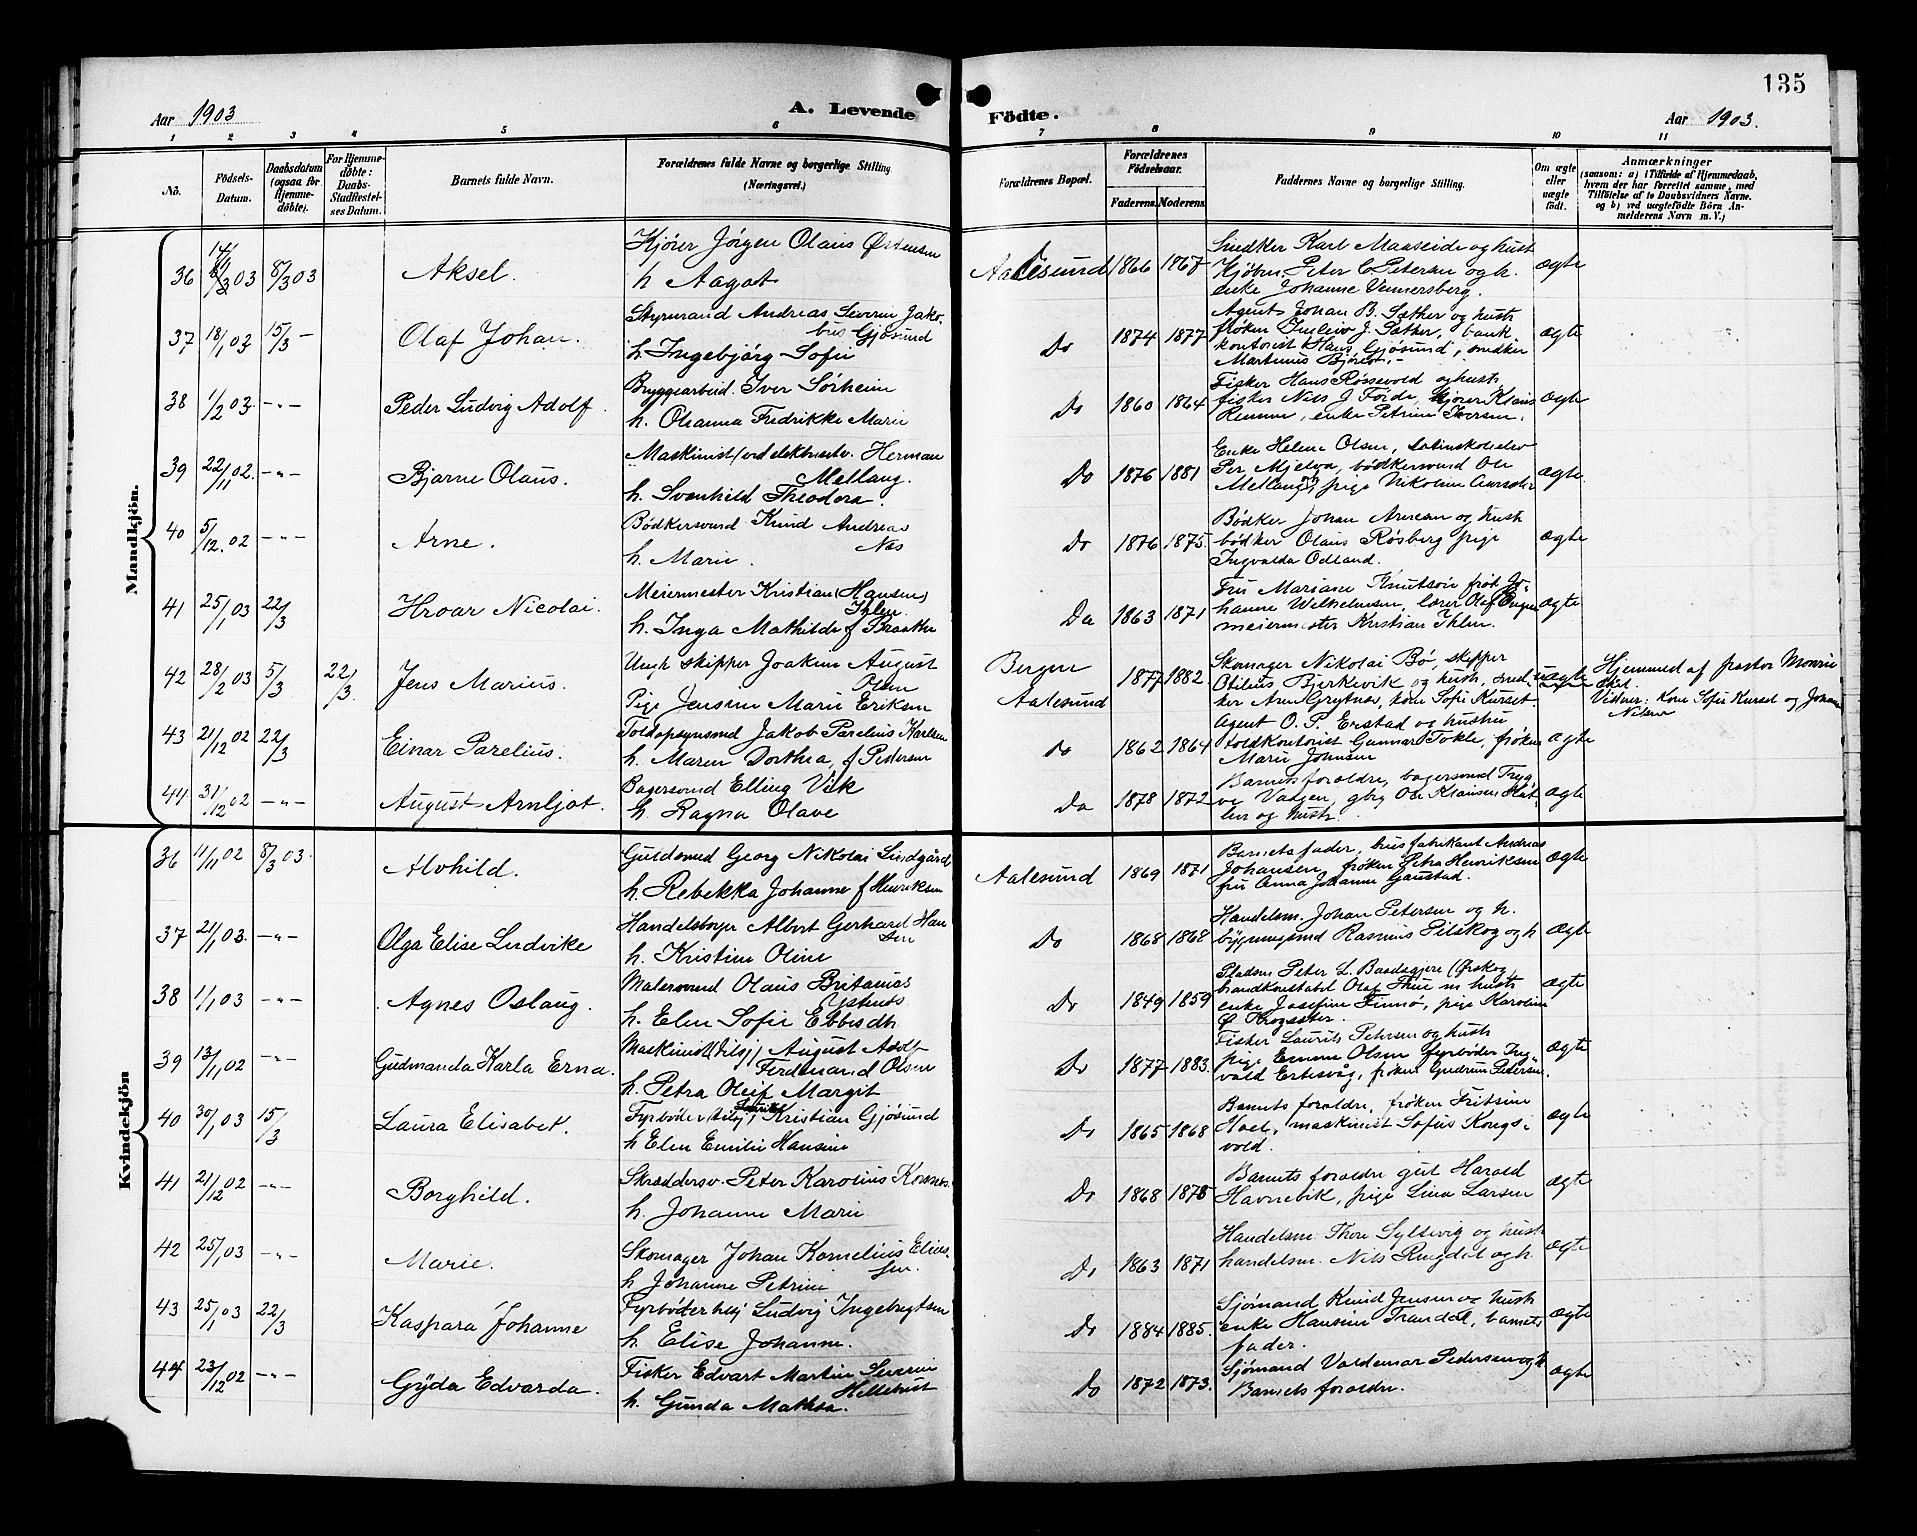 135
Aar 1903 A. Levende Födte. Aar 1903.
1 2 3 4 5 6 7 8 9 10 11
Nō. Födsels-Datum. Daabsdatum (ogsaa for Hjemme-döbte). For Hjemme-döbte: Daabs-Stadfæstel-ses Datum. Barnets fulde Navn. Forældrenes fulde Navne og borgerlige Stilling (Næringsvei.) Forældrenes Bopæl. Forældrenes Födselsaar. Faderens. Moderens. Faddernes Navne og borgerlige Stilling. Om ægte eller uægte födt. Anmærkninger (saasom: a) i Tilfælde af Hjemmedaab, hvem der har forrettet samme, med Tilföielse af to Daabsvidners Navne, og b) ved uægtefödte Börn An-melderens Navn m. V.)
Mandkjön.
36 8/3 03 Aksel. Kjörer Jörgen Olaus Østensen
h Aagot Aalesund 1866 1867 Snedker Karl Maaseide og hust
Peter C Petersen og h.
enke Johanne Vennersberg. ægte
37 18/1 03 15/3 - Olaf Johan. Styrmand Andreas Severin Jako-
bus Gjøsund
h Ingebjörg Sofie Do 1874 1877 Agent Johan B. Sæther og hust
frøken J. Sæther, bank
kontorist Hans Gjøsund, snedker
Martinus ægte
38 1/2 03 -"- Peder Ludvig Adolf. Bryggearbeid. Iver Sørheim
h. Oleanna Fredrikke Marie Do 1860 1864 Fisker Hans Røssevold og hust,
fisker Nils J. kjører Klaus
Remme, enke Petrine Iversen. ægte
39 22/11 02. -"- Bjarne Olaus. Maskinist (ved elektricitv. Herman
Mellang.
h. Svanhild Theodora. Do 1876 1881 Enke Helene Olsen, latinskoleelev
Per Mjelva, bødkersvend Ole
Mellang, pige Nikoline ægte
40 5/12. 02 -"- Arne. Bödkersvend Knud Andreas
Nes
h. Marie. Do 1876 1875. Bødker Johan Arnesen og hust
bødker Olaus Røsberg pige
Ingvalda Odland. ægte
41 25/1 03 22/3 Hroar Nicolai. Meiermester Kristian (Hansen)
Ihlen
h. Inga Mathilde f Braathe Do 1863 1871 Fru Mariane Knutson frøk Jo-
hanne Wilhelmsen, lærer Olaf
meiermester Kristian Ihlen. ægte
42 28/2 03 5/3 22/3. Jens Marius. Ungk skipper Joakim August
Olsen
Pige Jensine Marie Eriksen Bergen
Aalesund 1877 1882 Skomager Nikolai Bø, skipper
Otilius Bjerkevik og hust, sned-
ker Arne Grytnes, kone Sofie Kurset uægte Hjemmed af pastor Monrad
Vidner: Kone Sofie Kurset og Johan
Nilsen
43 21/12 02 22/3 Einar Parelius. Toldopsynsmd Jakob Parelius Karlsen
h. Maren Dorthea, f Pedersen do 1862 1864 Agent O. P. Erstad og hustru
toldkontorist Gunnar Tokle, frøken
Marie Johnsen ægte
44 31/12 02 -"- August Arnljot. Bagersvend Elling Vik
h. Ragna Olave Do 1878 1872 Barnets forældre, bagersvend Tryg
ve Vatgen, gbrg Ole Klausen
og hust. ægte
Kvindekjön
36 11/11 02 8/3 03. Alvhild. Guldsmed Georg Nikolai Lindgård
h. Rebekka Johanne f Henriksen Aalesund 1869 1871 Barnets fader, fabrikant Andreas
Johansen, frøken Petra Henriksen
fru Anna Johanne Gaustad. ægte
37 21/1 03. -"- Olga Elise Ludvike Handelsborger Albert Gerhard Han
sen
h. Kristine Oline Do 1868 1868 Handelsm. Johan Petersen og h.
bygningsmd Rasmus Pilskog og h ægte
38 1/1 03 -"- Agnes Oslaug. Malersvend Olaus Britanus
Ystenes
h. Elen Sofie Ebbesdtr Do 1849 1859 Pladsm Peter L. Baadsgjere (Ørskog)
brandkonstabel Olaf m hust
enke Josefine Finnø, pige Karoline
Ø ægte
39 13/11 02 -"- Gudmanda Karla Erna. Maskinist (tilsj), August Adolf
Ferdinand Olsen
h. Petra Oleif Margit Do 1877 1883. Fisker Laurits Petersen og hust
pige Emma Olsen fyrbøder Ing-
vald Ertesvåg, frøken Gudrun Petersen. ægte
40 30/1 03 15/3 Laura Elisabet. Fyrbøder (tilsj), Kristian Gjøsund
h Elen Emilie Hansine Do 1865 1868 Barnets forældre, frøken Fritsine
Hoel, maskinist Sofus Kongs-
vold. ægte
41 21/12 02 -"- Borghild. Skræddersv. Peter Karolius
h. Johanne Marie Do 1868 1875 Barnets forældre gut Harald
Havnevik, pige Lina Larsen ægte
42 25/1 03 -"- Marie. Skomager Johan Kornelius Elias-
sen.
h Johanne Petrine Do 1863 1871 Handelsm. Thore Sylterig og hust
handelsm. Nils Ringdal og h. ægte
43 25/1 03 22/3 Kaspara Johanne Fyrbøder Ludvig Ingebrigtsen
h. Elise Johanne. Do 1884 1885. Sjømand Knud Jensen og hust
enke Hansine Trandal, barnets
fader. ægte
44 23/12 02 -"- Gÿda Edvarda. Fisker Edvart Martin Severin
Hellehust
h. Gunda Mathea. Do 1872 1873. Sjømand Valdemar Pedersen og h
Barnets forældre. ægte